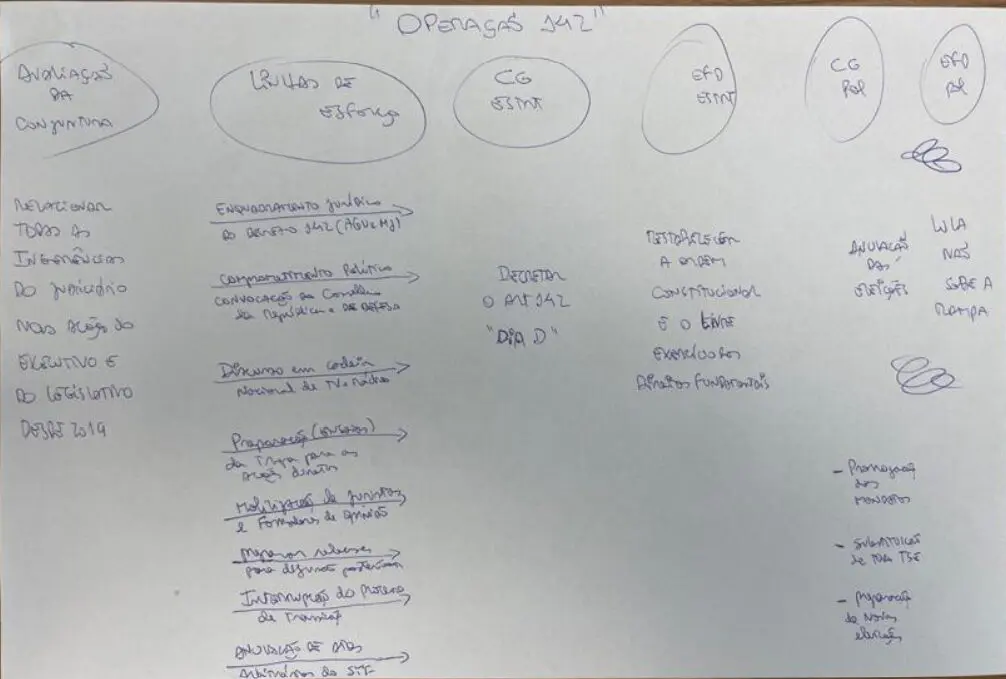 "OPERAÇÃO 142"
AVALIAÇÃO
DA
CONJUNTURA
LINHAS DE
ESFORÇO
CG
ESTRT
EFD
ESTRT
CG
POL
EFD
POL
RELACIONAR
TODAS AS
INTERFERÊNCIAS
DO JUDICIÁRIO
NAS AÇÕES DO
EXECUTIVO E
DO LEGISLATIVO
DESDE 2019
ENQUADRAMENTO JURÍDICO
DO DECRETO 142 (AGU e MJ)
COMPROMETIMENTO POLÍTICO
CONVOCAÇÃO do Conselho
da República e DE DEFESA
Discurso em cadeia
Nacional de TV e Rádio
Preparação
da Tropa para as
ações diretas
Mobilização de juristas
e Formadores de opinião
Preparar releases
para
Interrupção do Processo
de Transição
ANULAÇÃO DE ATOS
Arbitrários do STF
DECRETAR
O ART 142
"DIA D"
RESTABELECER
A ORDEM
CONSTITUCIONAL
E O LIVRE
EXERCÍCIO DOS
DIREITOS FUNDAMENTAIS
ANULAÇÃO
DAS
ELEIÇÕES
LULA
NÃO
SOBE A
RAMPA
- Prorrogação
dos
MANDATOS
- SUBSTITUIÇÃO
de TODO TSE
- Preparação
de Novas
eleições